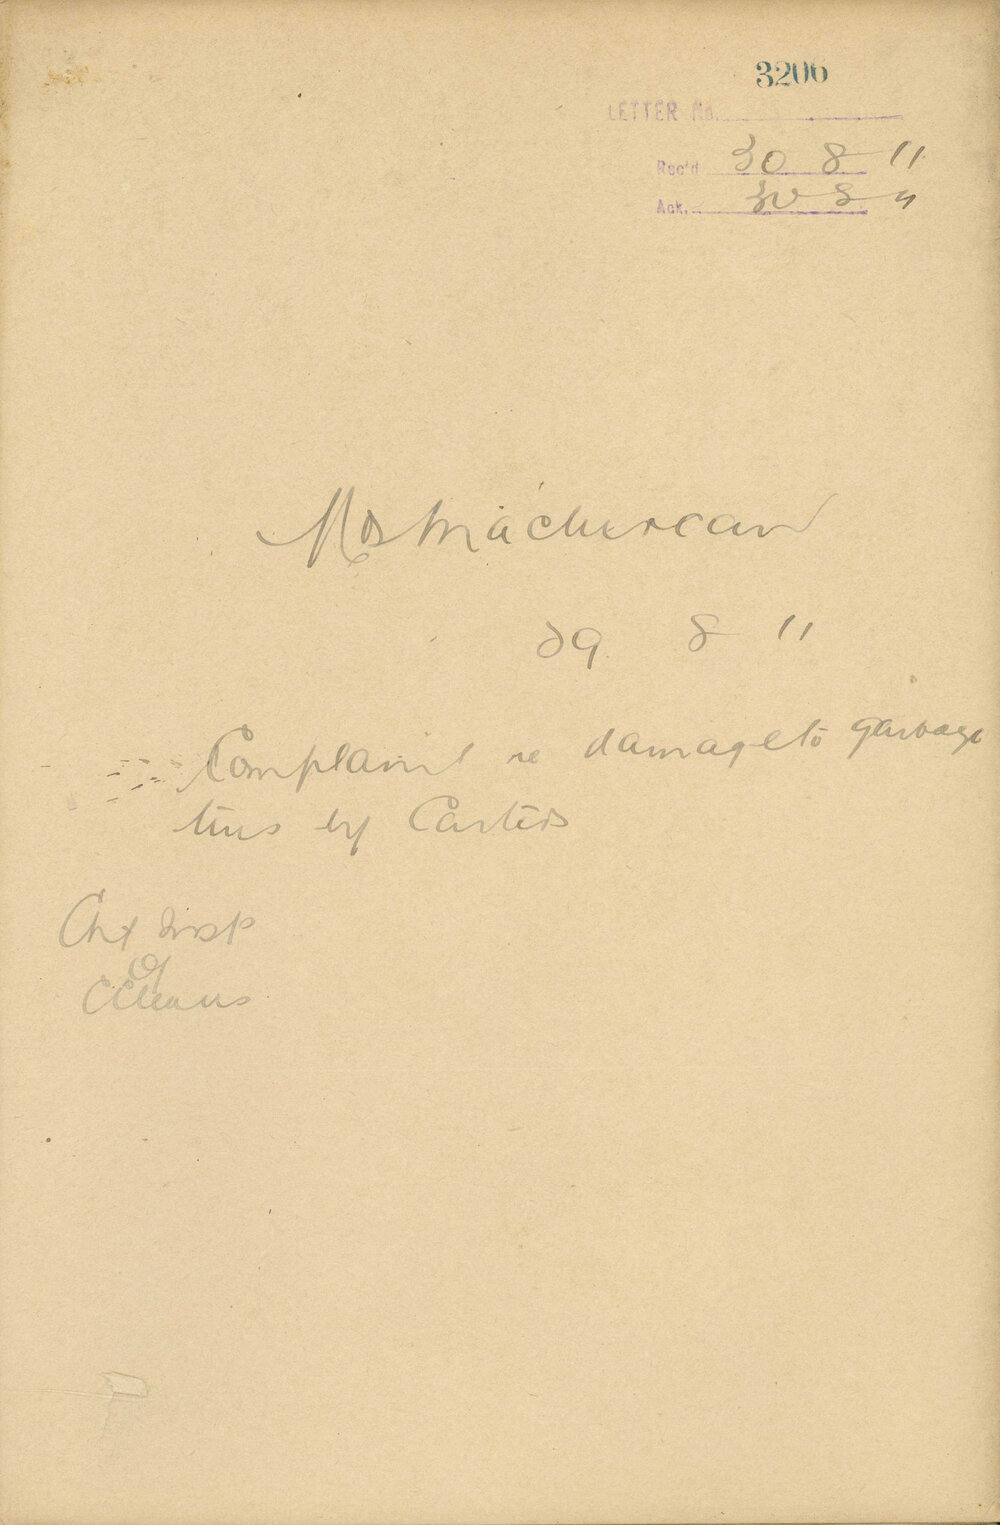 3206
LETTER No.
Rec'd 30 8 11
Ack. 30 8 11
Mrs
29 8 11
Complaint re damage to garbage
tins by Carters
Chf Insp
of